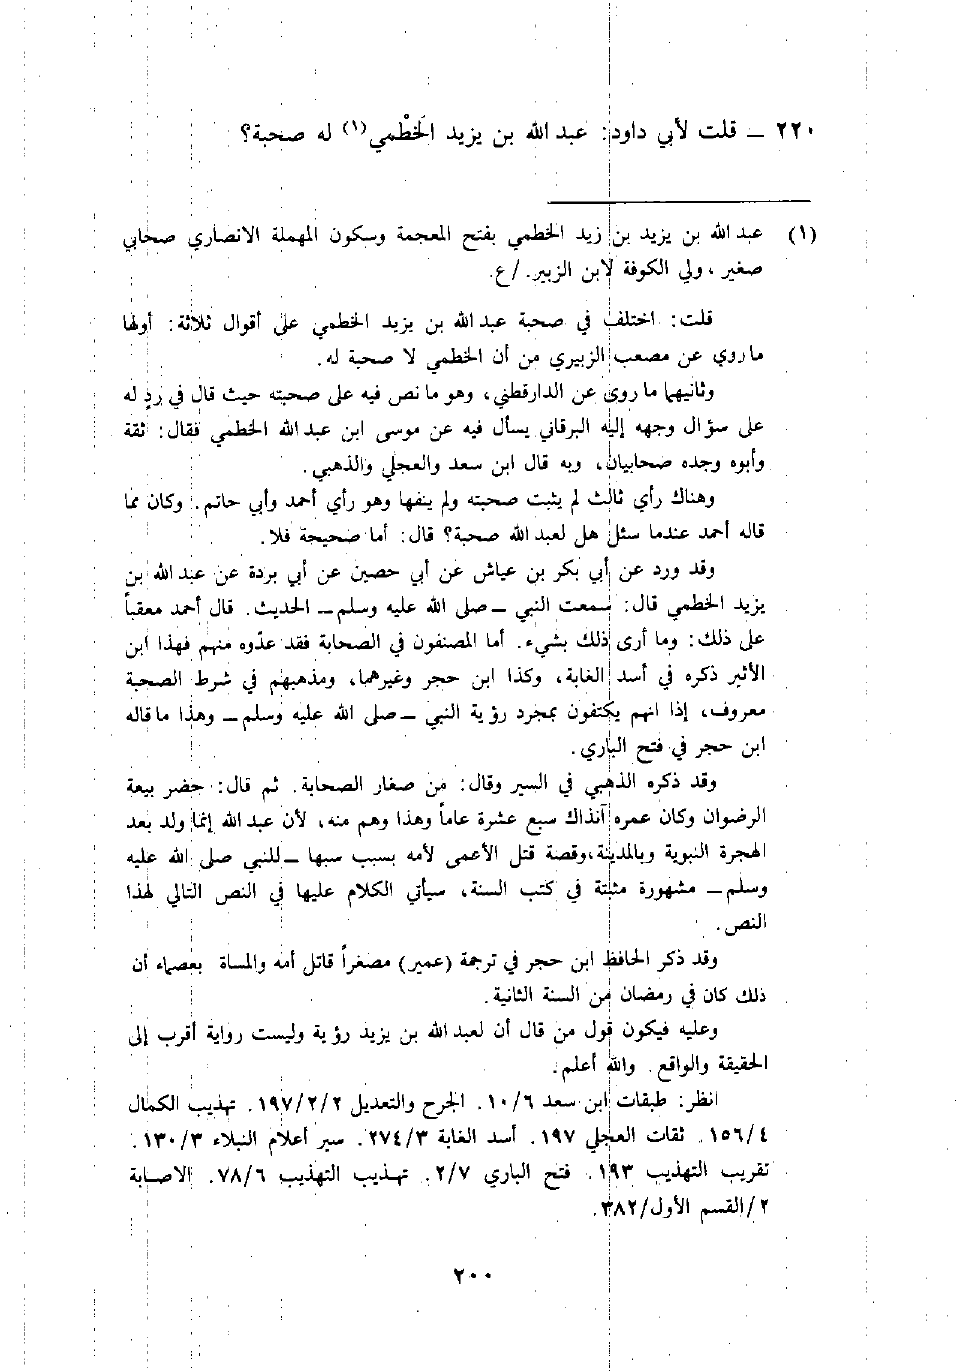 ٢٢٠ ــ قلت لأبي داود: عبد الله بن يزيد الخَطْمي(١) له صحبة؟
(١) عبد الله بن يزيد بن زيد الخطمي بفتح المعجمة وسكون المهملة الانصاري صحابي
صغير، ولي الكوفة لابن الزبير. /ع.
قلت: اختلف في صحبة عبد الله بن يزيد الخطمي على أقوال ثلاثة: أولها
ما روي عن مصعب الزبيري من أن الخطمي لا صحبة له.
وثانيهما ما روى عن الدارقطني، وهو ما نص فيه على صحبته حيث قال في ردٍ له
على سؤال وجهه إليه البرقاني يسأل فيه عن موسى ابن عبد الله الخطمي فقال: ثقة
وأبوه وجده صحابيان، وبه قال ابن سعد والعجلي والذهبي.
وهناك رأي ثالث لم يثبت صحبته ولم ينفها وهو رأي أحمد وأبي حاتم. وكان مما
قاله أحمد عندما سئل هل لعبد الله صحبة؟ قال: أما صحيحة فلا.
وقد ورد عن أبي بكر بن عياش عن أبي حصين عن أبي بردة عن عبد الله بن
يزيد الخطمي قال: سمعت النبي ــ صلى الله عليه وسلم ــ الحديث. قال أحمد معقباً
على ذلك: وما أرى ذلك بشيء. أما المصنفون في الصحابة فقد عدّوه منهم فهذا ابن
الأثير ذكره في أسد الغابة، وكذا ابن حجر وغيرهما، ومذهبهم في شرط الصحبة
معروف، إذا انهم يكتفون بمجرد رؤية النبي ــ صلى الله عليه وسلم ــ وهذا ما قاله
ابن حجر في فتح الباري.
وقد ذكره الذهبي في السير وقال: من صغار الصحابة. ثم قال: حضر بيعة
الرضوان وكان عمره آنذاك سبع عشرة عاماً وهذا وهم منه، لأن عبد الله إنما ولد بعد
الهجرة النبوية وبالمدينة، وقصة قتل الأعمى لأمه بسبب سبها ــ للنبي صلى الله عليه
وسلم ــ مشهورة مثبتة في كتب السنة، سيأتي الكلام عليها في النص التالي لهذا
النص.
وقد ذكر الحافظ ابن حجر في ترجمة (عمير) مصغراً قاتل أمه والمساة بعصماء أن
ذلك كان في رمضان من السنة الثانية.
وعليه فيكون قول من قال أن لعبد الله بن يزيد رؤية وليست رواية أقرب إلى
الحقيقة والواقع. والله أعلم.
انظر: طبقات ابن سعد ١٠/٦. الجرح والتعديل ١٩٧/٢/٢. تهذيب الكمال
١٥٦/٤. ثقات العجلي ١٩٧. أسد الغابة ٢٧٤/٣. سير أعلام النبلاء ١٣٠/٣.
تقريب التهذيب ١٩٣. فتح الباري ٢/٧. تهذيب التهذيب ٧٨/٦. الاصابة
٢/القسم الأول/٣٨٢.
٢٠٠